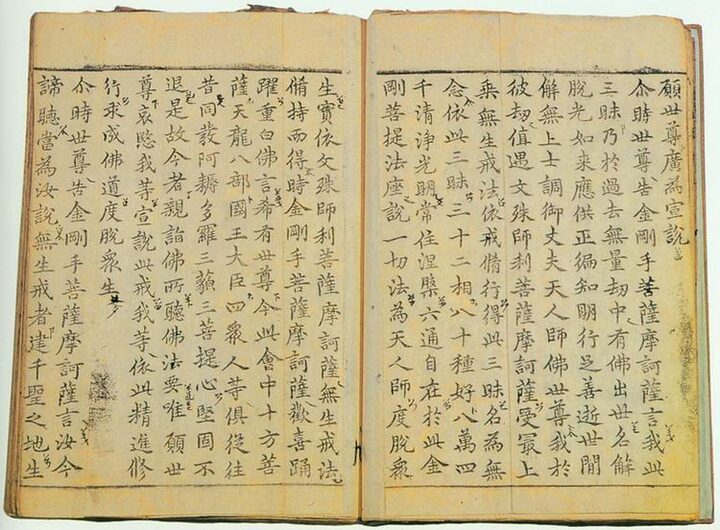 願世尊廣爲宣說
尒時世尊告金剛手菩薩摩訶薩言我此
三昧乃於過去無量劫中有佛出世名解
脫光如来應供正徧知明行足善逝世間
解無上士調御丈夫天人師佛世尊我於
彼劫值遇文殊師利菩薩摩訶薩受冣上
乗無生戒法依戒脩行得此三昧名為無
念依此三昧三十二相八十種好八萬四
千清淨光明常住涅槃六通自在於此金
剛菩提法座說一切法為天人師度脫衆
生實依文殊師利菩薩摩訶薩無生戒法
脩持而得時金剛手菩薩摩訶薩歡喜踊
躍重白佛言希有世尊今此會中十方菩
薩天龍八部國王大臣四衆人等俱從往
昔同發阿耨多羅三藐三菩提心堅固不
退是故今者親詣佛所聽佛法要唯願世
尊哀愍我等宣說此戒我等依此精進修
行求成佛道度脫衆生
尒時世尊告金剛手菩薩摩訶薩言汝今
諦聽當為汝說無生戒者達千聖之地生